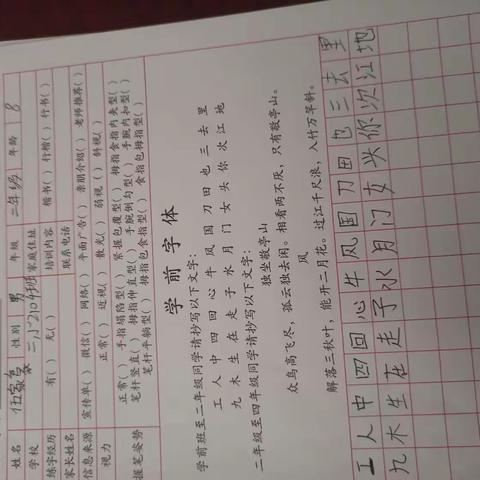 姓名 伍家 性别 男 年级 二年级 年龄 8
学校 二小2104班 家庭住址
练字经历 有( ) 无( ) 培训内容 楷书( ) 行楷( ) 行书( )
家长姓名 联系电话
信息来源 宣传单( ) 微信( ) 网络( ) 平面广告( ) 亲朋介绍( ) 老师推荐( )
视力 正常( ) 近视( ) 散光( ) 弱视( ) 斜视( )
握笔姿势 正常( ) 手指塌陷型( ) 紧握包覆型( ) 拇指食指内夹型( )
笔杆竖直( ) 拇指伸直型( ) 手腕倒勾型( ) 手腕内扣型( )
笔杆平躺型( ) 拇指包食指型( ) 食指包拇指型( )
学前字体
学前班至二年级同学请抄写以下文字:
工 人 中 四 回 心 牛 风 国 刀 田 也 三 去 里
九 木 生 在 走 子 水 月 门 女 头 你 次 江 地
二年级至四年级同学请抄写以下文字:
独坐敬亭山
众鸟高飞尽，孤云独去闲。相看两不厌，只有敬亭山。
风
解落三秋叶，能开二月花。过江千尺浪，入竹万竿斜。
工人中四回心牛风国刀田也三去里
九木生在走子水月门女头你次江地